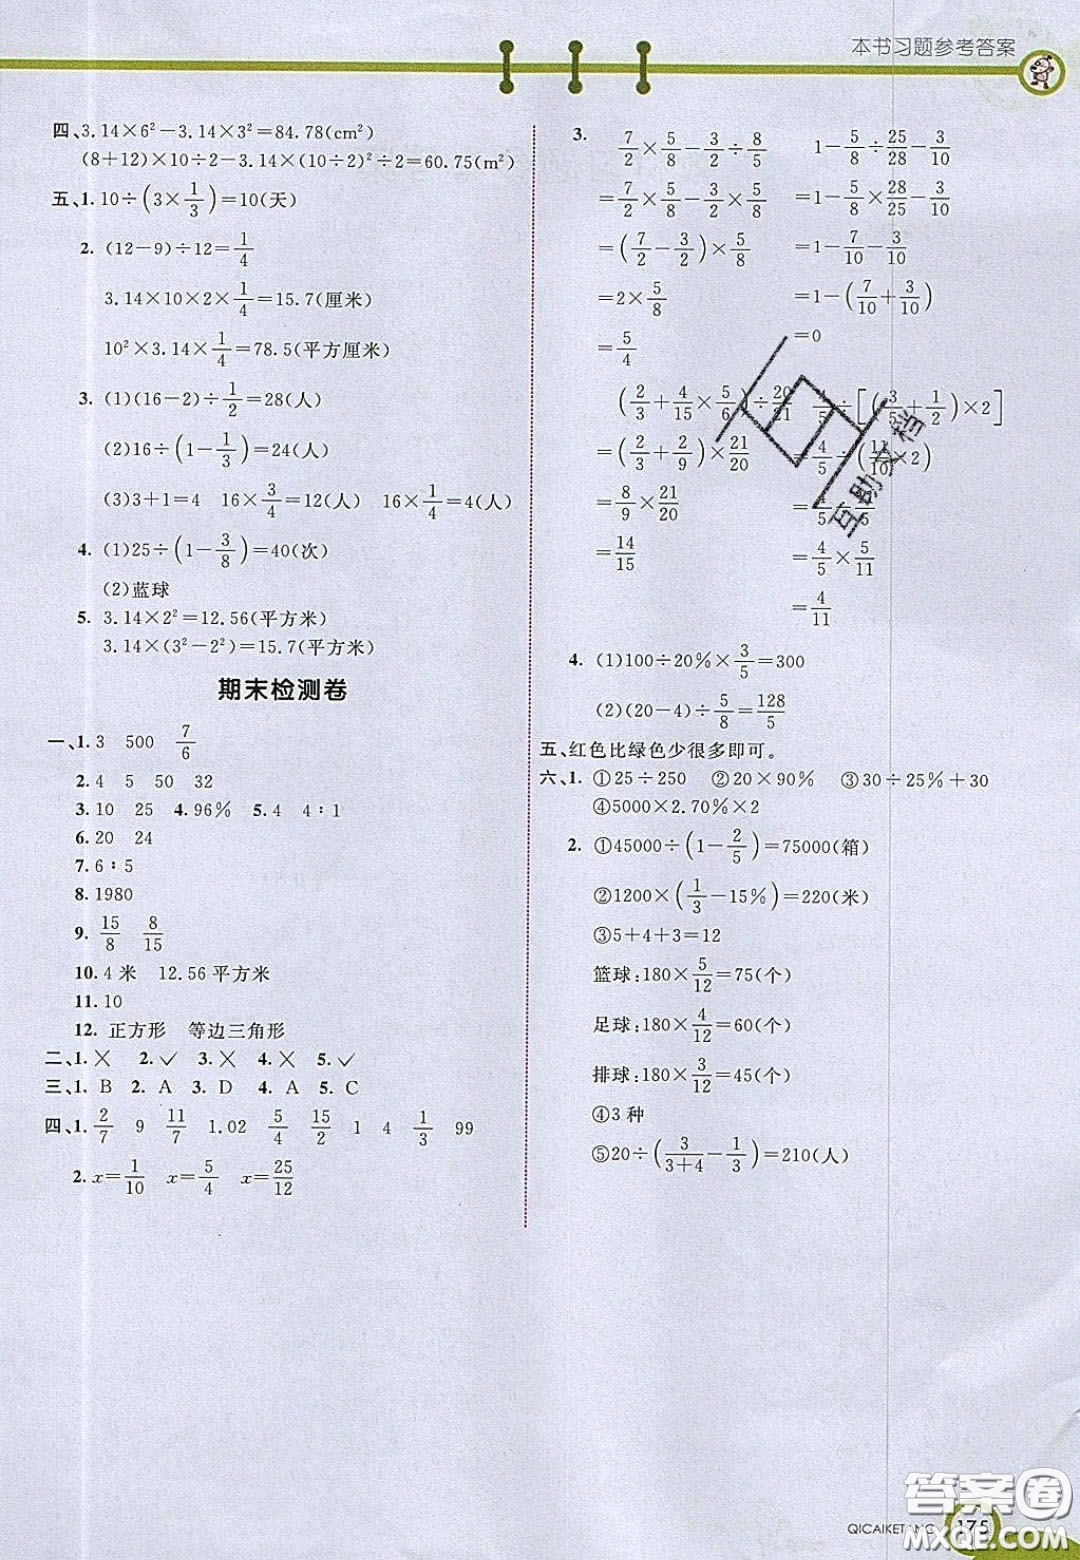 本书习题参考答案
四、3.14×6²－3.14×3²＝84.78(cm²)
(8＋12)×10÷2－3.14×(10÷2)²÷2＝60.75(m²)
五、1. 10÷(3×1/3)＝10(天)
2. (12－9)÷12＝1/4
3.14×10×2×1/4＝15.7(厘米)
10²×3.14×1/4＝78.5(平方厘米)
3. (1)(16－2)÷1/2＝28(人)
(2)16÷(1－1/3)＝24(人)
(3)3＋1＝4 16×3/4＝12(人) 16×1/4＝4(人)
4. (1)25÷(1－3/8)＝40(次)
(2)蓝球
5. 3.14×2²＝12.56(平方米)
3.14×(3²－2²)＝15.7(平方米)
期末检测卷
一、1. 3 500 7/6
2. 4 5 50 32
3. 10 25 4. 96% 5. 4 4∶1
6. 20 24
7. 6∶5
8. 1980
9. 15/8 8/15
10. 4米 12.56平方米
11. 10
12. 正方形 等边三角形
二、1. ✕ 2. ✓ 3. ✕ 4. ✕ 5. ✓
三、1. B 2. A 3. D 4. A 5. C
四、1. 2/7 9 11/7 1.02 5/4 15/2 1 4 1/3 99
2. x＝1/10 x＝5/4 x＝25/12
3. 7/2×5/8－3/2÷8/5
＝7/2×5/8－3/2×5/8
＝(7/2－3/2)×5/8
＝2×5/8
＝5/4
1－5/8÷25/28－3/10
＝1－5/8×28/25－3/10
＝1－7/10－3/10
＝1－(7/10＋3/10)
＝0
(2/3＋4/15×5/6)÷20/21
＝(2/3＋2/9)×21/20
＝8/9×21/20
＝14/15
4/5÷[(3/5＋1/2)×2]
＝4/5÷(11/10×2)
＝4/5÷ /5
＝4/5×5/11
＝4/11
4. (1)100÷20%×3/5＝300
(2)(20－4)÷5/8＝128/5
五、红色比绿色少很多即可。
六、1. ①25÷250 ②20×90% ③30÷25%＋30
④5000×2.70%×2
2. ①45000÷(1－2/5)＝75000(箱)
②1200×(1/3－15%)＝220(米)
③5＋4＋3＝12
篮球:180×5/12＝75(个)
足球:180×4/12＝60(个)
排球:180×3/12＝45(个)
④3种
⑤20÷(3/3＋4－1/3)＝210(人)
互助文档
答案圈
MXQE.COM
QICAIKETANG 175